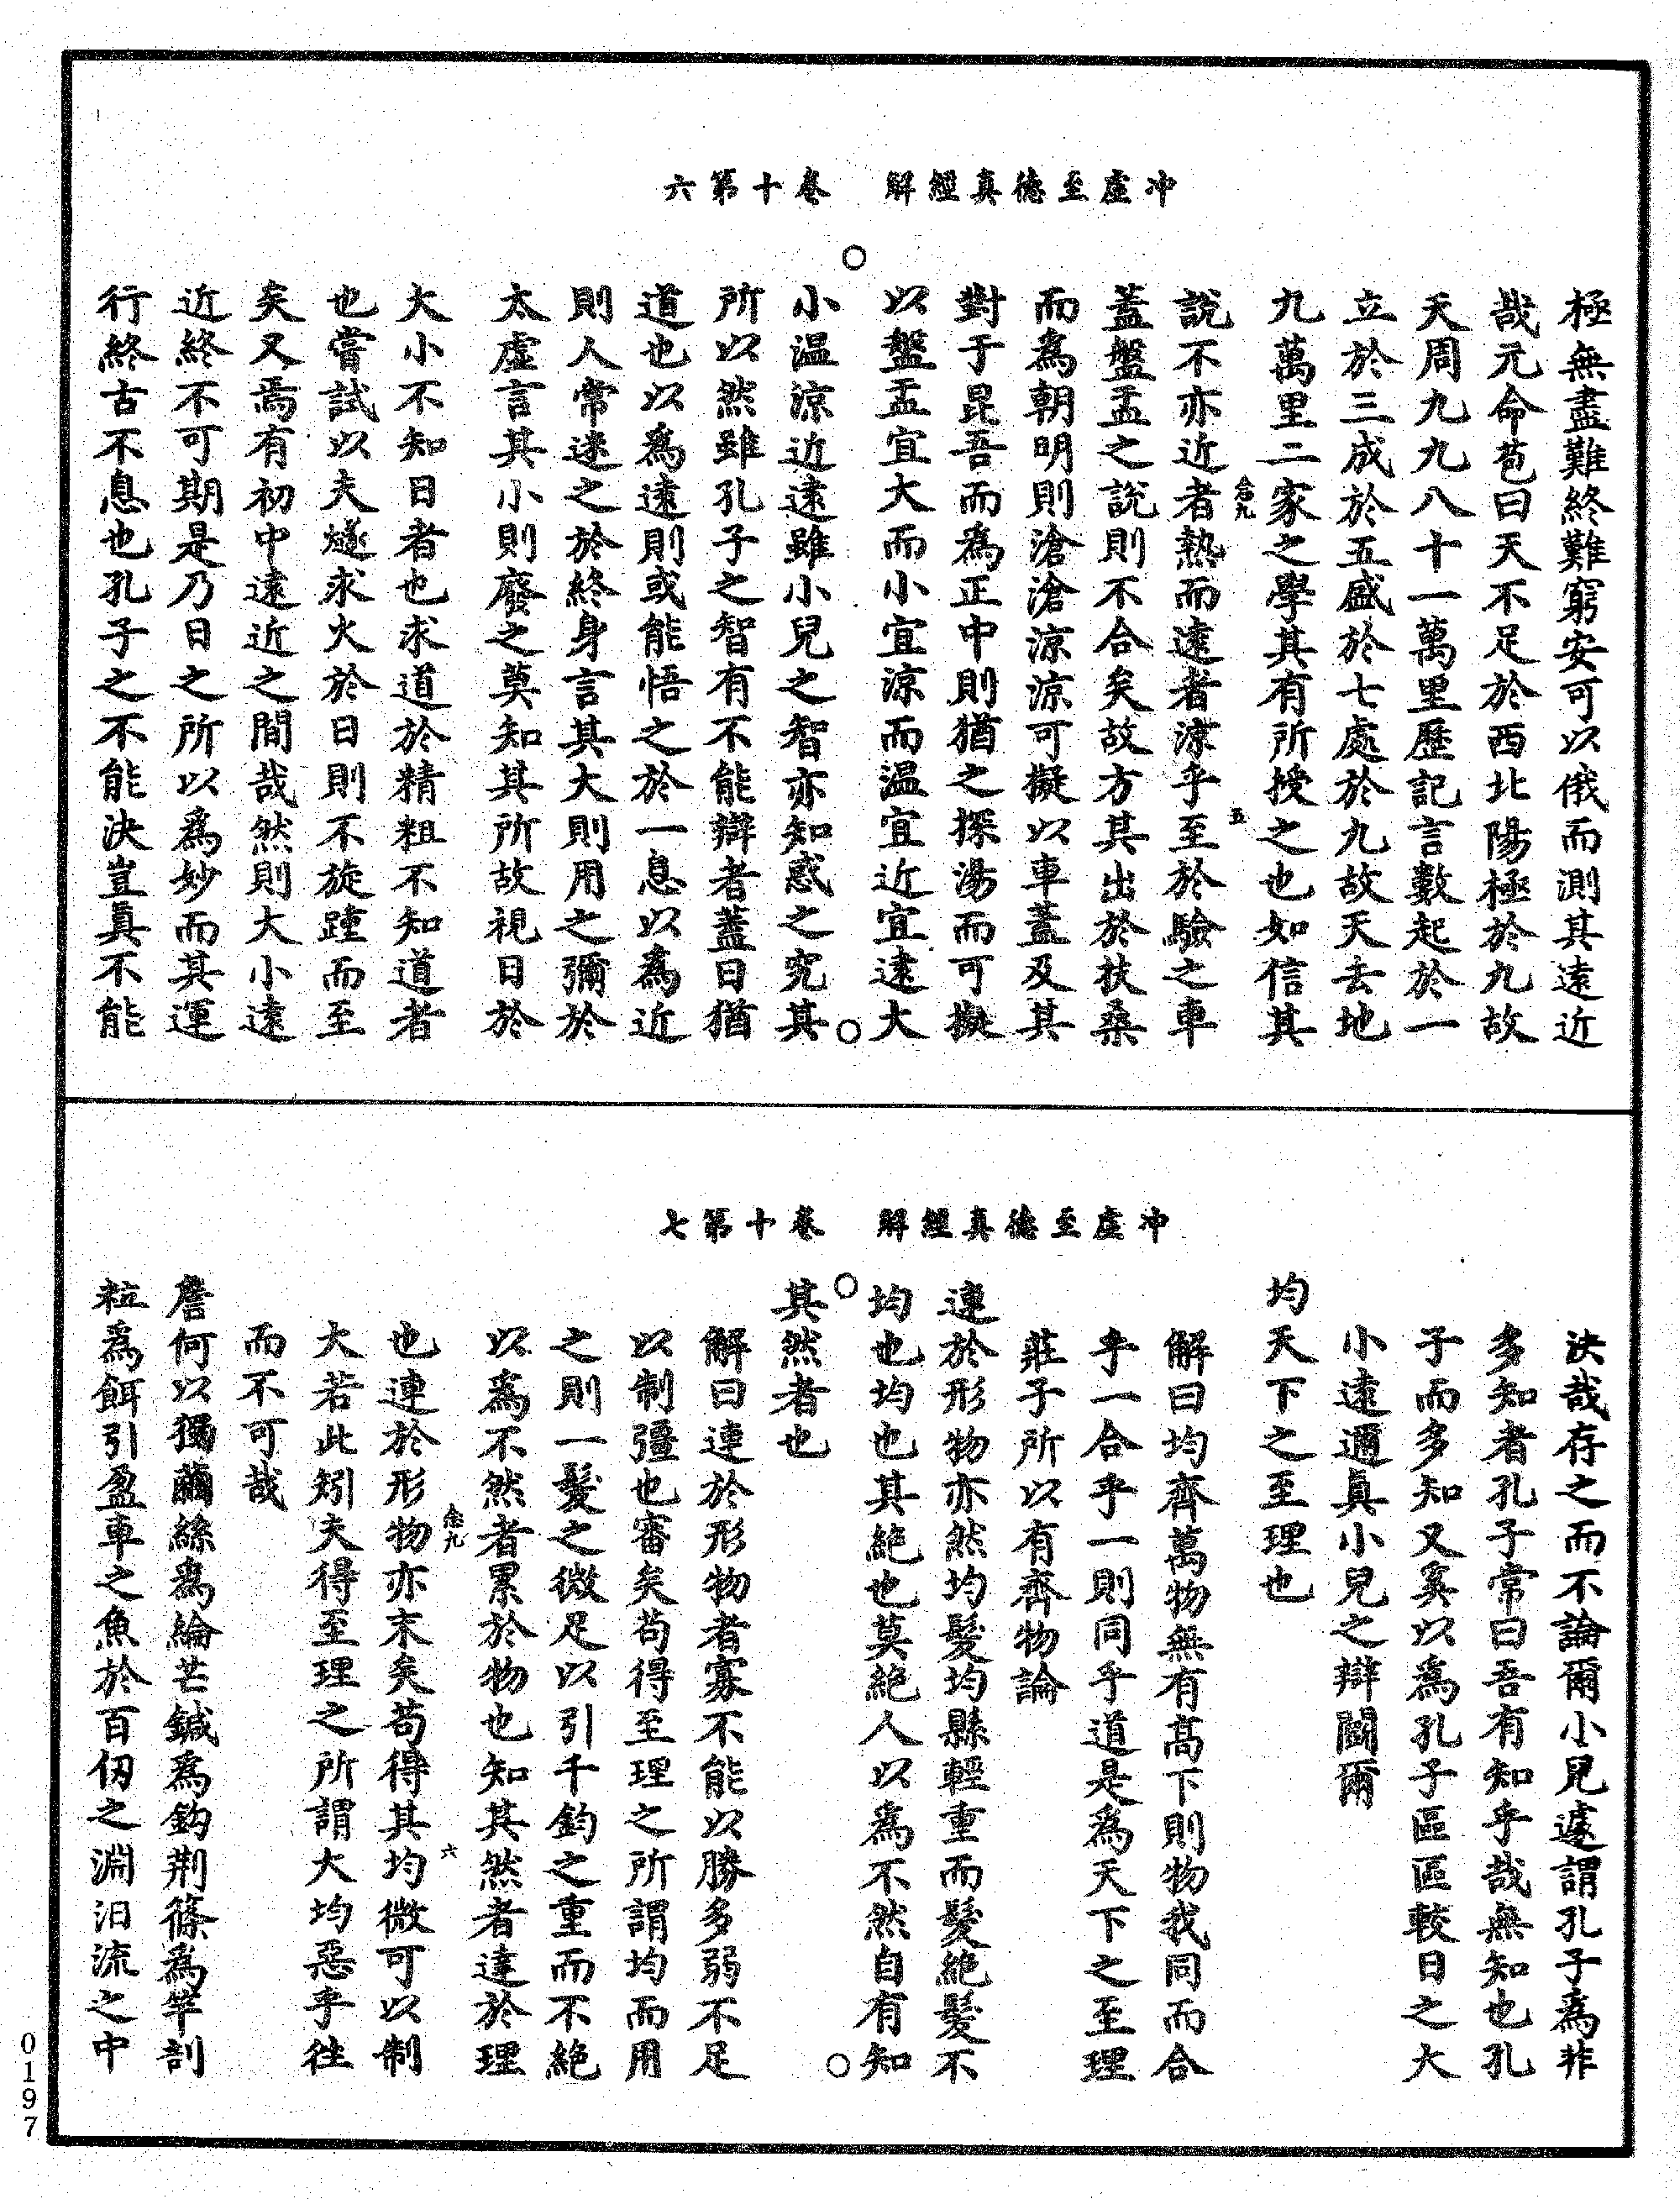 冲虛至德真經解　卷十第六
極無盡難終難窮安可以俄而測其遠近
哉元命苞曰天不足於西北陽極於九故
天周九九八十一萬里歷記言數起於一
立於三成於五盛於七處於九故天去地
九萬里二家之學其有所授之也如信其
說不亦近者熱而遠者涼乎至於驗之車
蓋盤盂之說則不合矣故方其出於扶桑
而為朝明則滄滄涼涼可擬以車蓋及其
對于昆吾而為正中則猶之探湯而可擬
以盤盂宜大而小宜涼而溫宜近宜遠大
小溫涼近遠雖小兒之智亦知惑之究其
所以然雖孔子之智有不能辯者蓋日猶
道也以為遠則或能悟之於一息以為近
則人常迷之於終身言其大則用之彌於
太虛言其小則廢之莫知其所故視日於
大小不知日者也求道於精粗不知道者
也嘗試以夫燧求火於日則不旋踵而至
矣又焉有初中遠近之間哉然則大小遠
近終不可期是乃日之所以為妙而其運
行終古不息也孔子之不能決豈真不能
冲虛至德真經解　卷十第七
決哉存之而不論爾小兒遽謂孔子為非
多知者孔子常曰吾有知乎哉無知也孔
子而多知又奚以為孔子區區較日之大
小遠邇真小兒之辯鬭爾
均天下之至理也
解曰均齊萬物無有高下則物我同而合
乎一合乎一則同乎道是為天下之至理
莊子所以有齊物論
連於形物亦然均髮均縣輕重而髮絕髮不
均也均也其絕也莫絕人以為不然自有知
其然者也
解曰連於形物者寡不能以勝多弱不足
以制彊也審矣苟得至理之所謂均而用
之則一髮之微足以引千鈞之重而不絕
以為不然者累於物也知其然者達於理
也連於形物亦末矣苟得其均微可以制
大若此矧夫得至理之所謂大均惡乎往
而不可哉
詹何以獨繭絲為綸芒鍼為鈎荆篠為竿剖
粒為餌引盈車之魚於百仞之淵汩流之中
0197